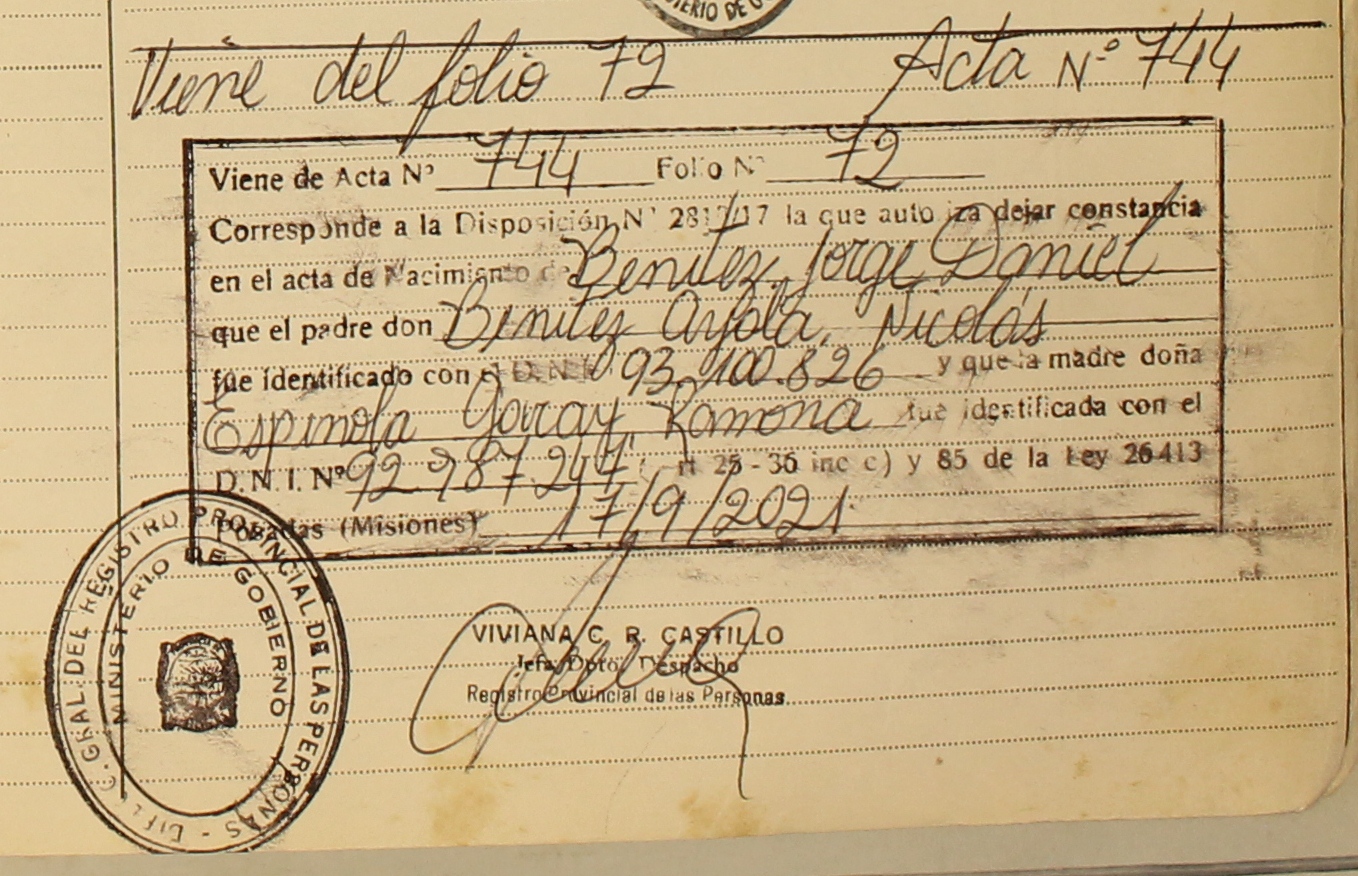 MINISTERIO DE GO
Viene del folio 72 Acta Nº 744
Viene de Acta Nº 744 Folio Nº 72
Corresponde a la Disposición Nº 2817/17 la que autoriza dejar constancia
en el acta de Nacimiento de Benitez, Jorge Daniel
que el padre don Benitez Ayala, Nicolás
fue identificado con el D.N.I. Nº 93.100.826 y que la madre doña
Espinola Garay, Ramona fue identificada con el
D.N.I. Nº 92.787.247 (Art 25 - 36 inc c) y 85 de la Ley 26413
Posadas (Misiones) 17/9/2021
VIVIANA C. R. CASTILLO
Jefa Dpto. Despacho
Registro Provincial de las Personas
GRAL. DEL REGISTRO PROVINCIAL DE LAS PERSONAS
MINISTERIO DE GOBIERNO